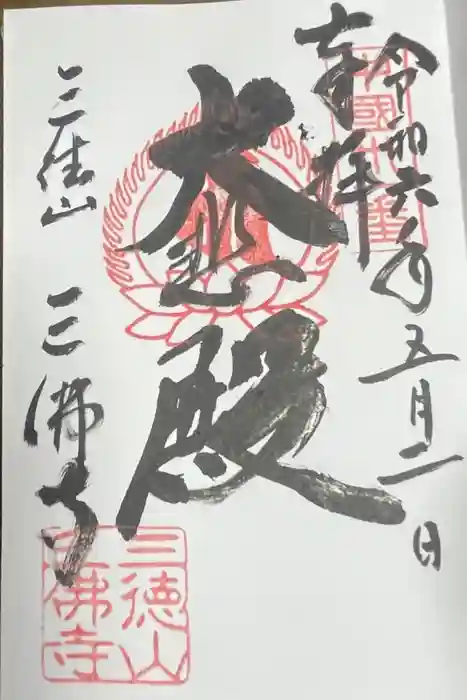 奉拝
令和六年五月二日
大悲殿
三徳山 三佛寺
三徳山
三佛寺